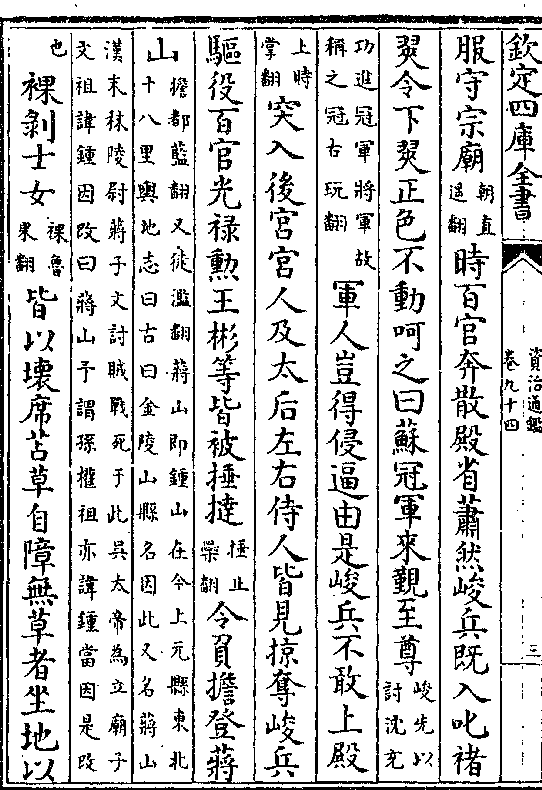 欽定四庫全書
資治通鑑
卷九十四
三
服守宗廟朝直遥翻時百官奔散殿省蕭然峻兵既入叱褚
翜令下翜正色不動呵之曰蘇冠軍來覲至尊峻先以討沈充
功進冠軍將軍故稱之冠古玩翻軍人豈得侵逼由是峻兵不敢上殿
上時掌翻突入後宮宮人及太后左右侍人皆見掠奪峻兵
驅役百官光祿勲王彬等皆被捶撻捶止橤翻令負擔登蔣
山擔都藍翻又徒濫翻蔣山即鍾山在今上元縣東北十八里輿地志曰古曰金陵山縣名因此又名蔣山
漢末秣陵尉蔣子文討賊戰死于此吳太帝為立廟子文祖諱鍾因改曰蔣山予謂孫權祖亦諱鍾當因是改
也裸剝士女裸魯果翻皆以壞席苫草自障無草者坐地以